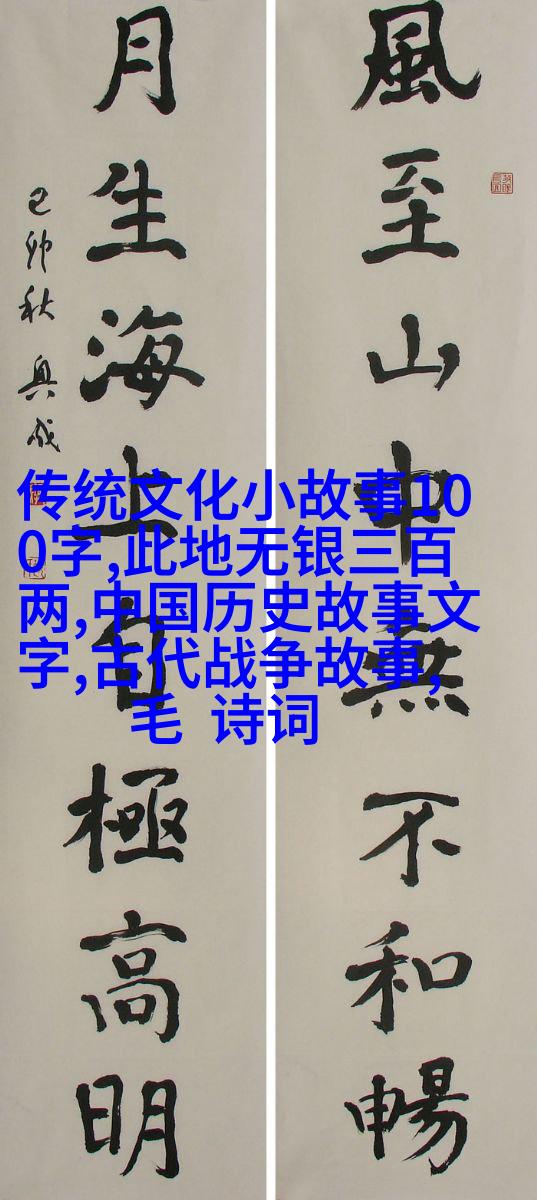 風至山中無不和暢
月生海上自極高明
己卯秋
传统文化小故事10
0字,此地无银三百
两,中国历史故事文
字,古代战争故事,
毛 诗词